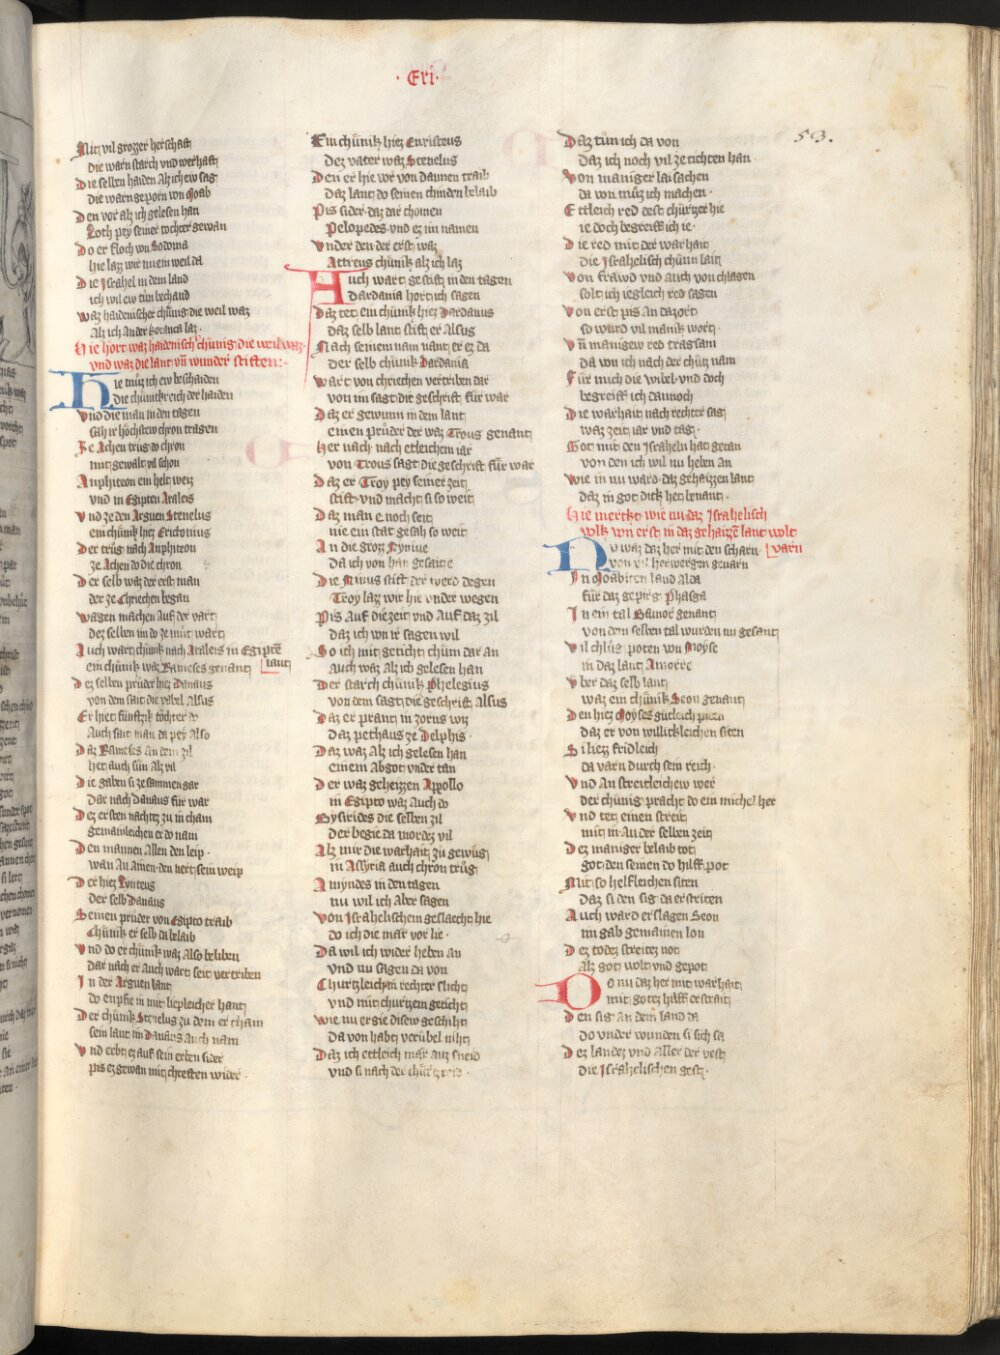 · Eri ·
53.
Mit vil grozzer herschaft
die warn starch vnd werhaft
Die selben haiden Alz ich ew sag
die warn geporn von Moab
Den vor alz ich gelesen han
Loth pey seiner tochter gewan
Do er floch von Sodoma
hie lazz wir nu ein weil da
Die Israhel in dem land
ich wil ew tün bechand
Waz haidenischer chünig die weil waz
Alz ich An der koranica laz ·
Hie hort waz haidenisch chünig die weil waz
vnd waz die lant vn wunder stiften :·
Hie müz ich ew beschaiden
die chünikreich der haiden
Vnd die man in den tagen
sah ir höchsten chron tragen
Ze Achen trug do chron
mit gewalt vil schon
Anphitron ein helt weis
vnd in Egipten Araleis
Vnd ze den Arguen Stenelus
ein chünik hiez Erictonius
Der trüg nach Anphitron
ze Achen do die chron
Der selb waz der erst man
der ze Chriechen began
Wagen machen Auf der vart
dez selben im do ze müt wart
Auch wart chünik nach Araleis in Egipte
ein chünik waz Rameses genant lant
Dez selben prüder hiez Danaus
von dem sait die vabel Alsus
Er het fünftzik töchter do
Auch sait man da pey Also
Daz Rameses An dem zil
het auch sün Alz vil
Die gaben si ze sammen gar
Dar nach Danaus für war
Dez ersten nachtez zu in cham
gemainleichen er do nam
Den mannen Allen den leip ·
wan An Ainen · den nert sein weip
Der hiez Lynteus
der selb Danaus
Seinen prüder von Egipto traib
Chünik er selb da belaib
Vnd do er chünik waz Also beliben
dar nach er Auch wart seit vertriben
In der Arguen lant
do enpfie in mit liepleicher hant
Der chünk Stenelus zu dem er cham
sein lant im Danaus Auch nam
Vnd erbt ez auf sein erben sider
pis ez gewan mit chreften wider ·
Ein chünik hiez Euristeus
Dez vater waz Stenelus
Den er hie vor von dannen traib
daz lant do seinen chindern belaib
Pis sider daz dar chomen
Pelopedes vnd ez im namen
Vnder den der erst waz
Attreus chünik alz ich laz
Auch wart gestift in den tagen
Dardania hort ich sagen
Daz tet ein chünik hiez Dardanus
daz selb lant stift er Alsus
Nach seinem nam nant er ez da
der selb chünik Dardania
Wart von chriechen vertriben dar
von im sagt die geschrift für war
Daz er gewunn in dem lant
einen prüder der waz Trous genant
Her nach · nach etleichem iar
von Trous sagt die geschrift für war
Daz er Troy pey seiner zeit
stift · vnd macht si so weit
Daz man e noch seit
nie ein stat gesah so weit
An die grozz Nyniue
da ich von han gesait e
Die Ninus stift der werd degen
Troy lazz wir hie vnder wegen
Pis Auf die zeit vnd Auf daz zil
daz ich von ir sagen wil
So ich mit geticht chüm dar an
auch waz Alz ich gelesen han
Der starch chünik Phelegius
von dem sagt die geschrift Alsus
Daz er prant in zorns wiz
daz pethaus ze Delphis ·
Daz waz Alz ich gelesen han
einem Abgot vnder tan
Der waz geheizzen Appollo
in Egipto waz Auch do
Bysirides die selben zil
der begie da mordez vil
Alz mir die warhait zu gewüg
in Assyria auch chron trüg
Amyndes in den tagen
nu wil ich Aber sagen
Von Israhelischem geslaecht hie
do ich die mär vor lie ·
Da wil ich wider heben an
vnd nu sagen da von
Churtzleich in rechter slicht
vnd mit churtzem geticht
Wie nu ergie disew geschiht
da von habt verübel niht
Daz ich etleich mär auz sneid
vnd si nach der chürtz meid ·
Daz tün ich da von
daz ich noch vil ze tichten han
Von maniger lai sachen
da von müz ich machen ·
Ettleich red dest chürtzer hie
ie doch begreiff ich ie ·
Die red mit der warhait
die Israhelisch chünn lait
Von frawd vnd auch von chlagen
solt ich iegleich red sagen
Von erst pis An daz ort
so wurd vil manik wort ·
Vn manigew red tragsam
da von ich nach der chürtz nam
Für mich die wibel · vnd doch
begreiff ich dannoch
Die warhait nach rechter sag
waz zeit iar vnd tag ·
Got mit den Israheln hat getan
von den ich wil nu heben an
Wie in nu ward daz gehaizzen lant
daz in got dick het benant ·
Hie merkt · wie nu daz Israhelisch
volk von erst in daz gehaizze lant wolt
varn
Nv waz daz her mit den scharn
von vil herwergen gevarn
In Moabiten land alda
für daz gepirg Phasga
In ein tal Bamot genant
von dem selben tal wurden nu gesant
Vil chlüg poten von Moyse
in daz lant Amorre
Vber daz selb lant
waz ein chünik Seon genant
Den hiez Moyses gütleich piten
daz er von willickleichen siten
Si liezz fridleich
da varn durch sein reich ·
Vnd An streitleichew wer
der chünig pracht do ein michel her
Vnd tet einen streit
mit in An der selben zeit
Dez maniger belaib tot
got den seinen do hilff pot
Mit so helfleichen siten
daz si den sig da erstriten
Auch ward erslagen Seon
im gab gemainen lon
Dez todez streitez not
Alz got wolt vnd gepot
Do nu daz her mit warhait
mit gotez hilff erstrait
Den sig · An dem land da
do vnder wunden si sich sa
Dez landez vnd Aller der vest
die Israhelischen gest ·